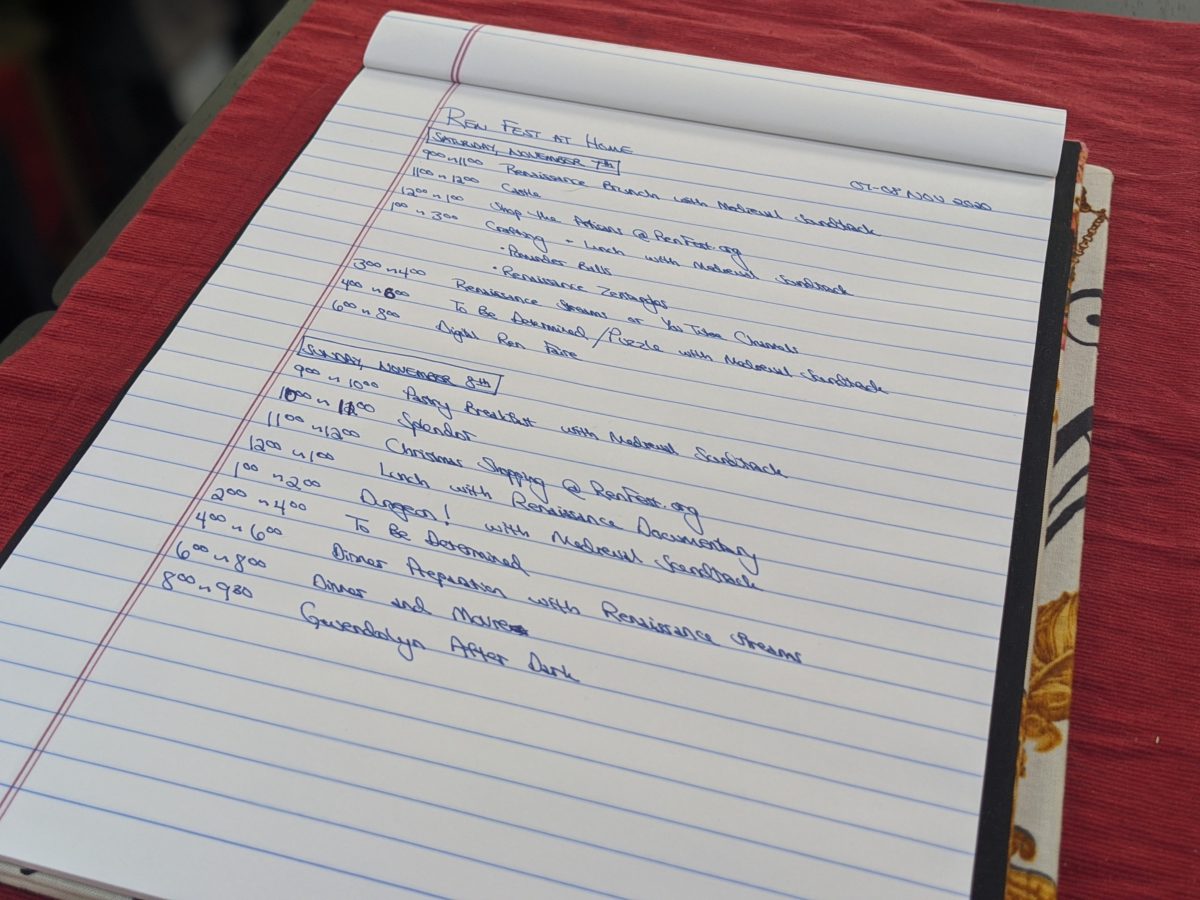 REN FEST AT HOME
07-08 NOV 2020
SATURDAY, NOVEMBER 7th
9:00 ~ 11:00 Renaissance Brunch with Medieval Soundtrack
11:00 ~ 12:00 Castle
12:00 ~ 1:00 Shop the Artisans @ RenFest.org
1:00 ~ 3:00 Crafting + Lunch with Medieval Soundtrack
• Pomander Balls
• Renaissance Zentangles
3:00 ~ 4:00 Renaissance Streams or YouTube Channels
4:00 ~ 6:00 To Be Determined / Puzzle with Medieval Soundtrack
6:00 ~ 8:00 Digital Ren Faire
SUNDAY, NOVEMBER 8th
9:00 ~ 10:00 Pastry Breakfast with Medieval Soundtrack
10:00 ~ 11:00 Splendor
11:00 ~ 12:00 Christmas Shopping @ RenFest.org
12:00 ~ 1:00 Lunch with Renaissance Documentary
1:00 ~ 2:00 Dungeon! with Medieval Soundtrack
2:00 ~ 4:00 To Be Determined
4:00 ~ 6:00 Dinner Preparation with Renaissance Streams
6:00 ~ 8:00 Dinner and Movie
8:00 ~ 9:30 Gwendolyn After Dark